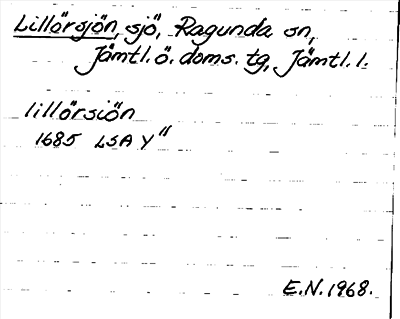 Lillörsjön, sjö, Ragunda sn,
Jämtl. ö. doms. tg, Jämtl. l.
lillörsiön
1685 LSA Y"
E.N. 1968.